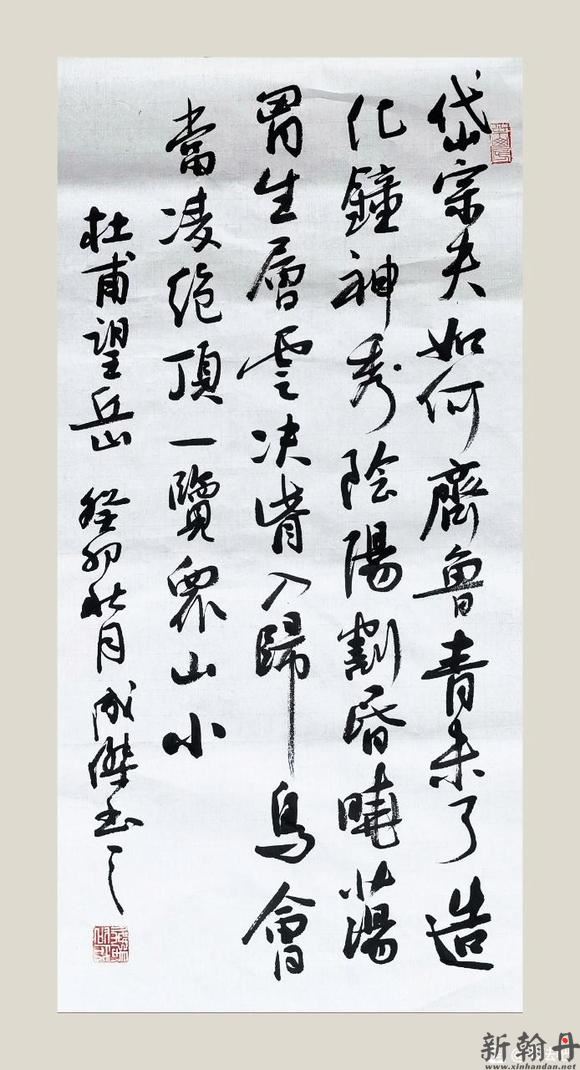 岱宗夫如何齊魯青未了造
化鐘神秀陰陽割昏曉蕩
胷生層雲决眥入歸鳥會
當凌絶頂一覽眾山小
杜甫望岳 癸卯秋月成傑書之
新翰丹
www.xinhandan.net